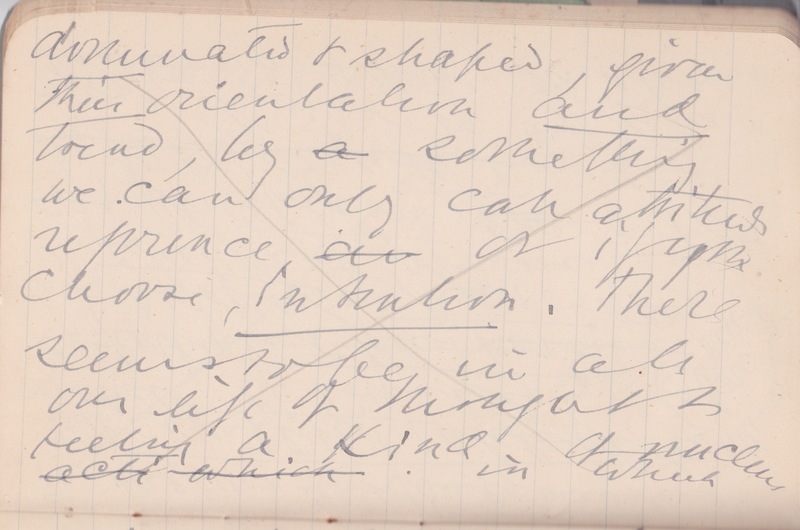 dominated & shaped, given
their orientation and
trend, by a something
we can only call attitude
reference, or if you
choose, intention. There
seems to be, in all
our life of thought &
feeling a kind of nucleus
acti which in which